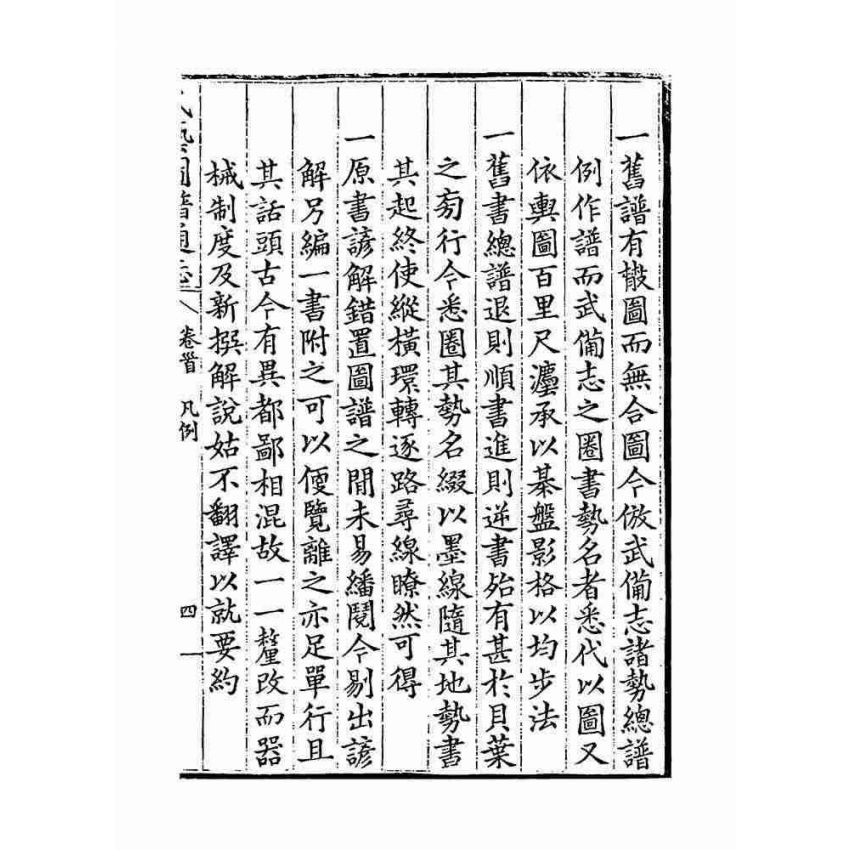 一舊譜有散圖而無合圖今倣武備志諸勢總譜
例作譜而武備志之圈書勢名者悉代以圖又
依輿圖百里尺瀍承以棊盤影格以均步法
一舊書總譜退則順書進則逆書殆有甚於貝葉
之旁行今悉圈其勢名綴以墨線隨其地勢書
其起終使縱橫環轉逐路尋線瞭然可得
一原書諺解錯置圖譜之間未易繙閱今剔出諺
解另編一書附之可以便覽離之亦足單行且
其話頭古今有異都鄙相混故一一釐改而器
械制度及新撰解說姑不翻譯以就要約
武藝圖譜通志 卷首 凡例 四